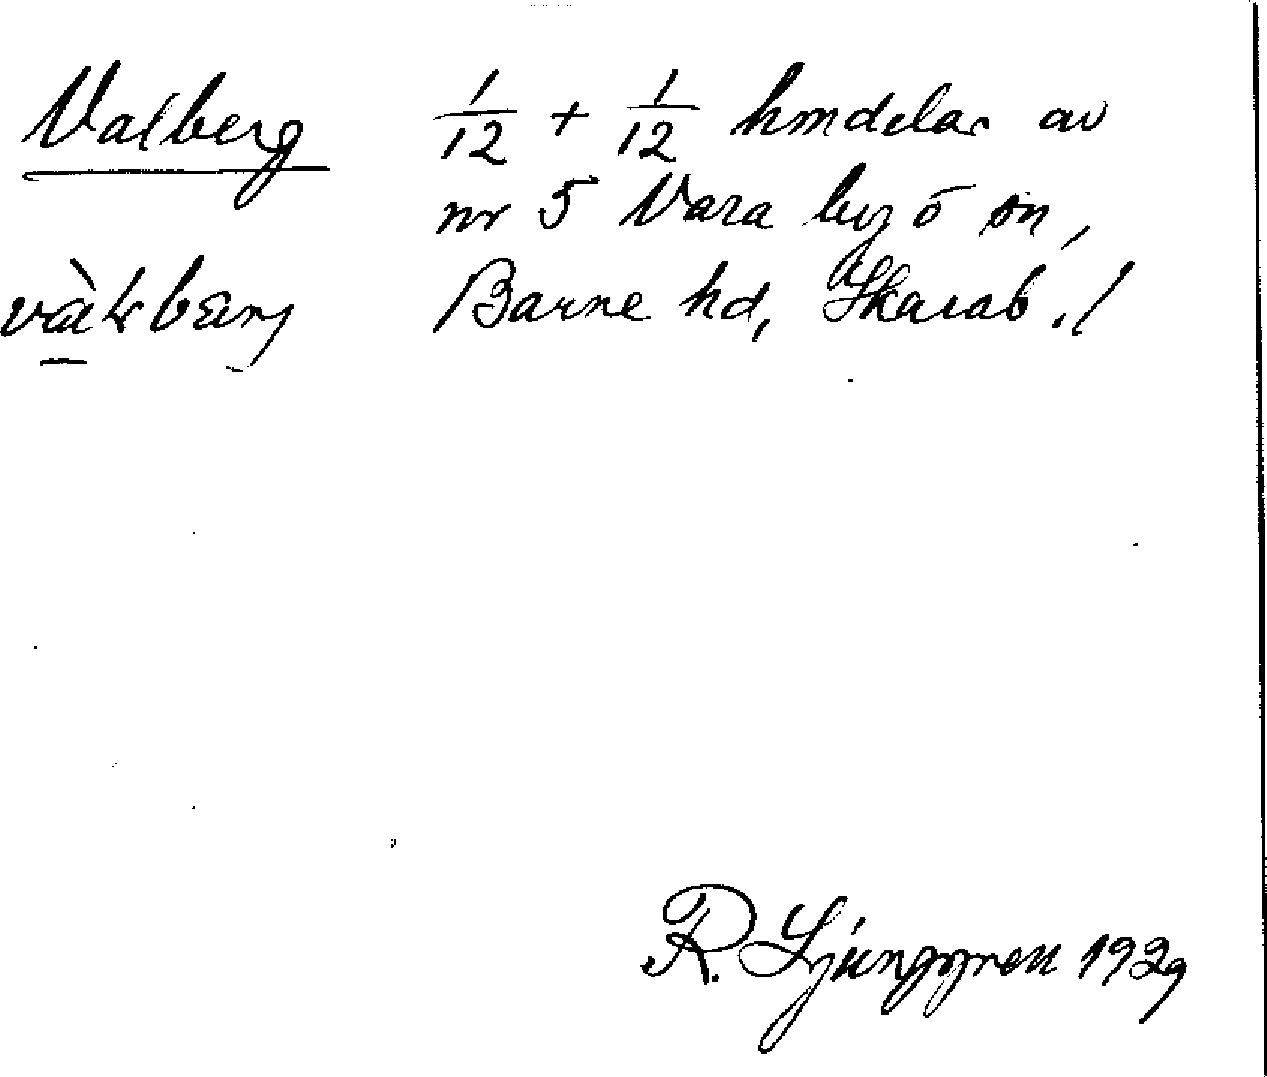 Valberg 1/12 + 1/12 hmdelar av
nr 5 Vara by ō sn,
vàlbærj Barne hd, Skarab. l
R. Ljunggren 1929